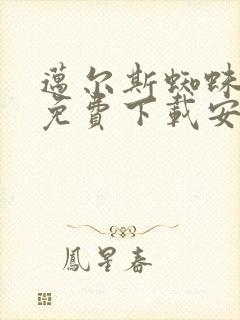 邁尔斯蜘蛛
免費下載安
鳳星春